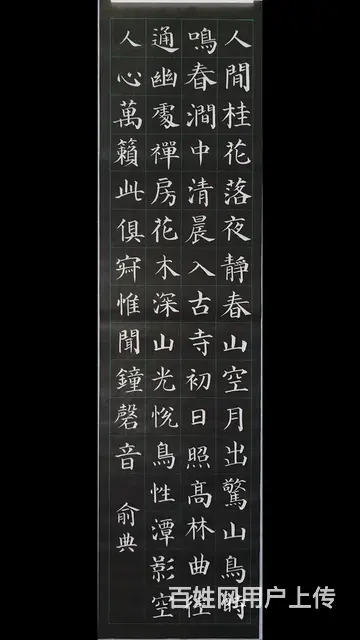 人閒桂花落夜靜春山空月出驚山鳥時
鳴春澗中清晨入古寺初日照高林曲徑
通幽處禪房花木深山光悅鳥性潭影空
人心萬籟此俱寂惟聞鐘磬音
俞典
百姓网用户上传